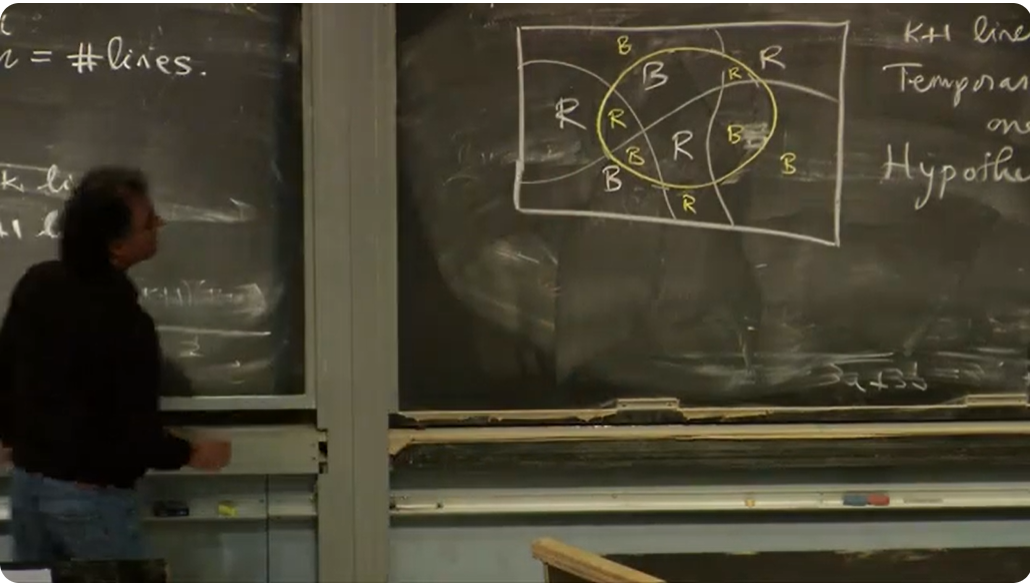 n = #lines.
k li
+1 l
B
B
R
R
R
R
B
R
B
B
B
R
k+1 line
Temporar
on
Hypothe